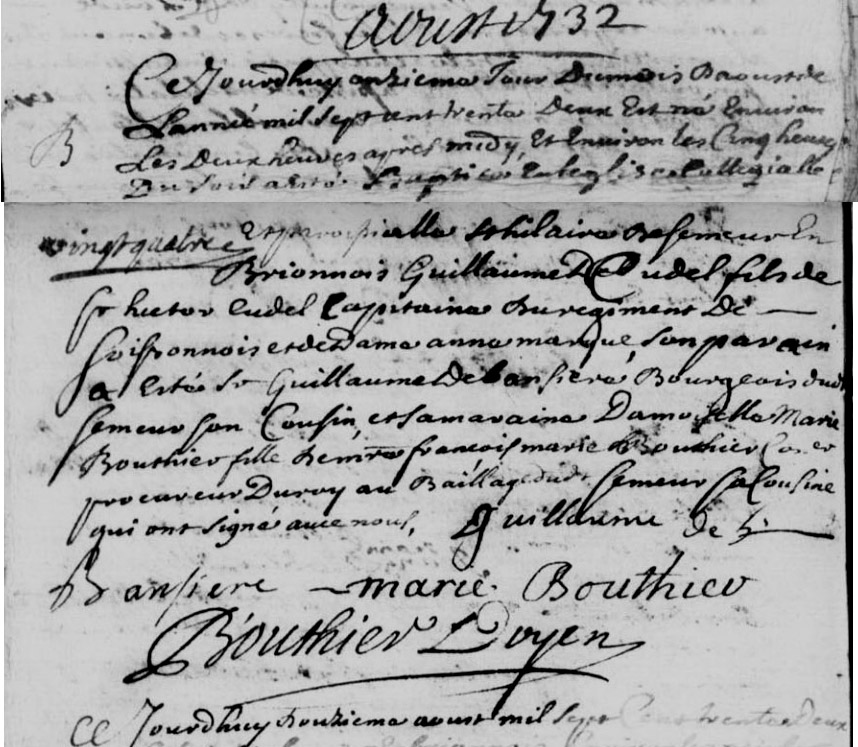 Aoust 1732
Ce Jourdhuy onzieme Jour Dumois Daoust de
Lanneé mil Sept cent trente Deux Est né Environ
B
Les Deux heures apres midy, Et Environ les Cinq heures
Du soir a esté Baptisé, En leglise Collegialle
vingt quatre
Et parroissialle St hilaire de semeur En
Brionnois Guillaume Cudel fils de
Sr hector Cudel Capitaine Du regiment De
soissonnois et de Dame anne marque, son parain
a Esté Sr Guillaume De bansiere Bourgeois dudt
semeur son Cousin, et sa maraine Damoiselle Marie
Bouthier fille De francois marie Bouthier
procureur Du roy au Baillage dudt Semeur sa Cousine
qui ont signé avec nous, Guillaume de
Bansiere marie Bouthier
Bouthier Doyen
Ce Jourdhuy Douzieme aoust mil Sept Cent trente Deux